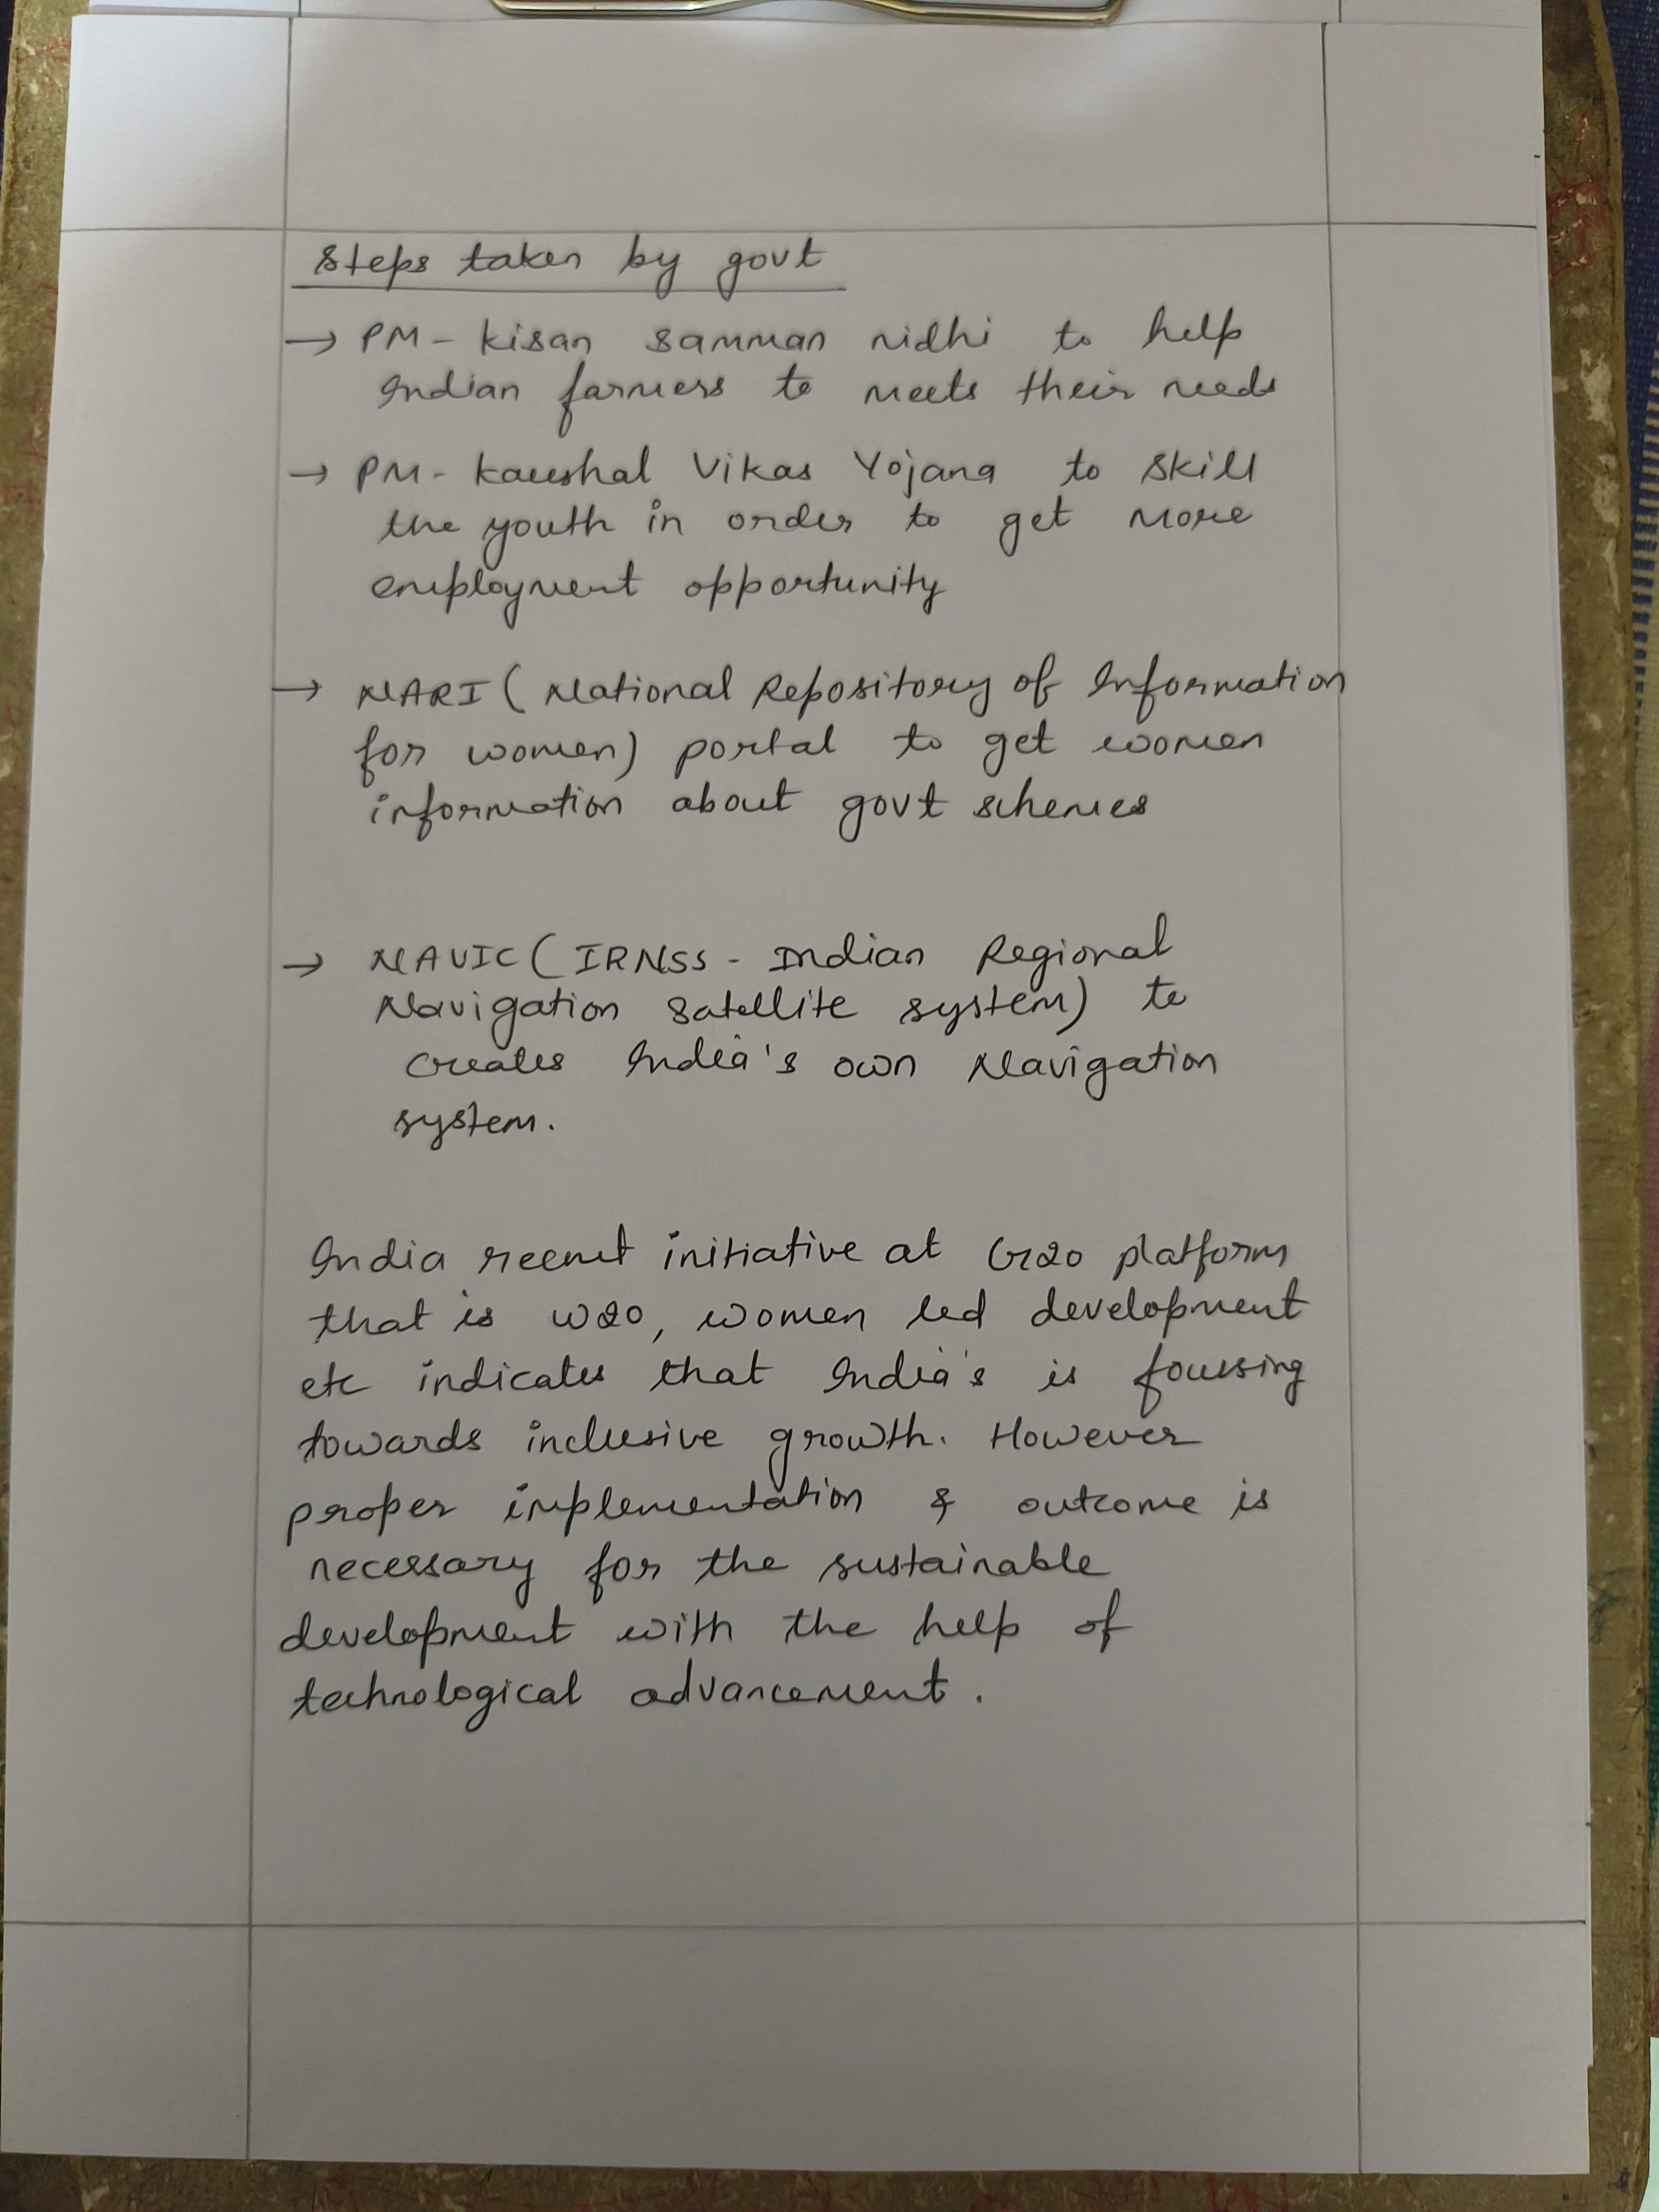 Steps taken by govt
→ PM - kisan samman nidhi to help
Indian farmers to meets their needs
→ PM - kaushal Vikas Yojana to skill
the youth in order to get more
employment opportunity
→ NARI ( National Repository of Information
for women) portal to get women
information about govt schemes
→ NAVIC ( IRNSS - Indian Regional
Navigation satellite system) to
creates India's own Navigation
system.
India recent initiative at G20 platform
that is W20, women led development
etc indicates that India's is focussing
towards inclusive growth. However
proper implementation & outcome is
necessary for the sustainable
development with the help of
technological advancement.